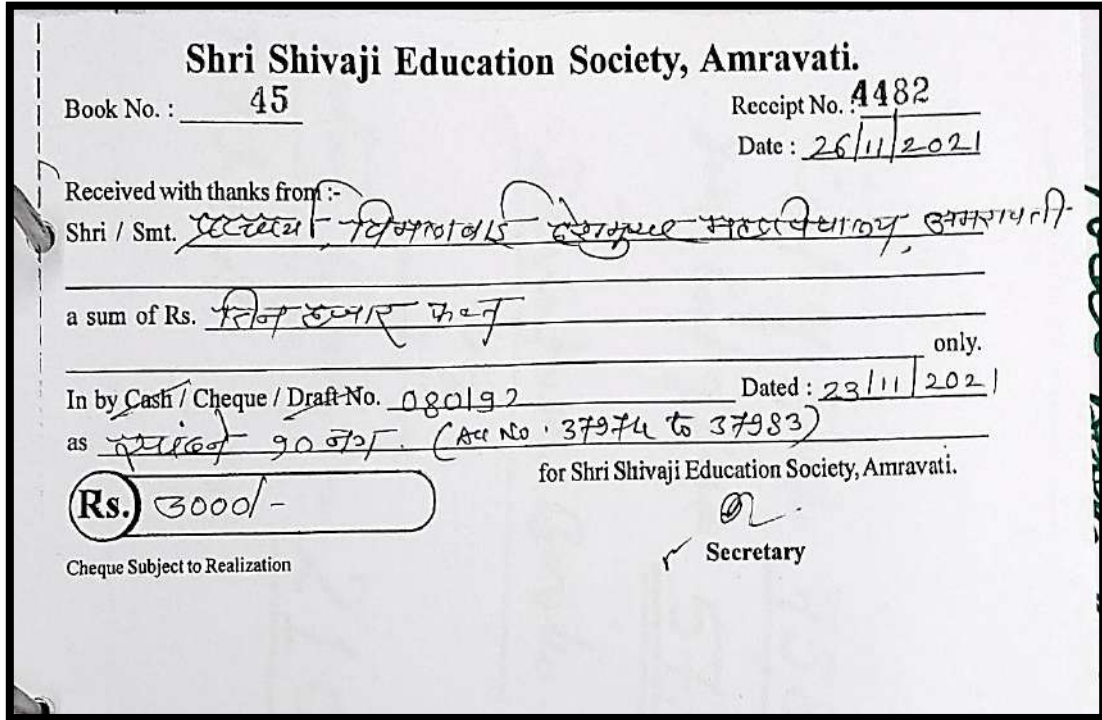 Shri Shivaji Education Society, Amravati.
Book No. : 45
Receipt No. : 4482
Date : 26/11/2021
Received with thanks from :-
Shri / Smt. प्राचार्या, विमलाबाई देशमुख महाविद्यालय, अमरावती
a sum of Rs. तिन हजार फक्त
only.
In by Cash / Cheque / Draft No. 080192 Dated : 23/11/2021
as १० नग. (Acc No. 37974 to 37983)
for Shri Shivaji Education Society, Amravati.
Rs. 3000/-
Secretary
Cheque Subject to Realization